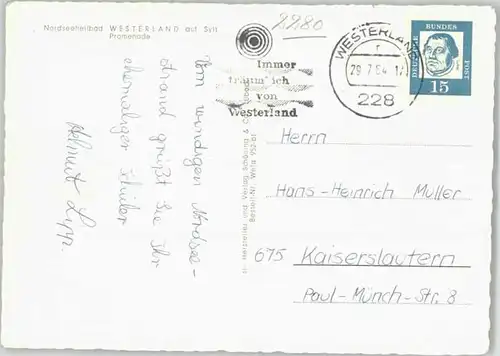 Nordseeheilbad WESTERLAND auf Sylt
Promenade
2280
Immer
träum' ich
von
Westerland
WESTERLAND
29.7.64
228
DEUTSCHE
BUNDES
POST
15
Vom windigen Nordsee-
strand grüßt Sie Ihr
ehemaliger Schüler
Helmut
Herrn
Hans-Heinrich Müller
675 Kaiserslautern
Paul-Münch-Str. 8
Verlag Schöning &
Bestell-Nr.